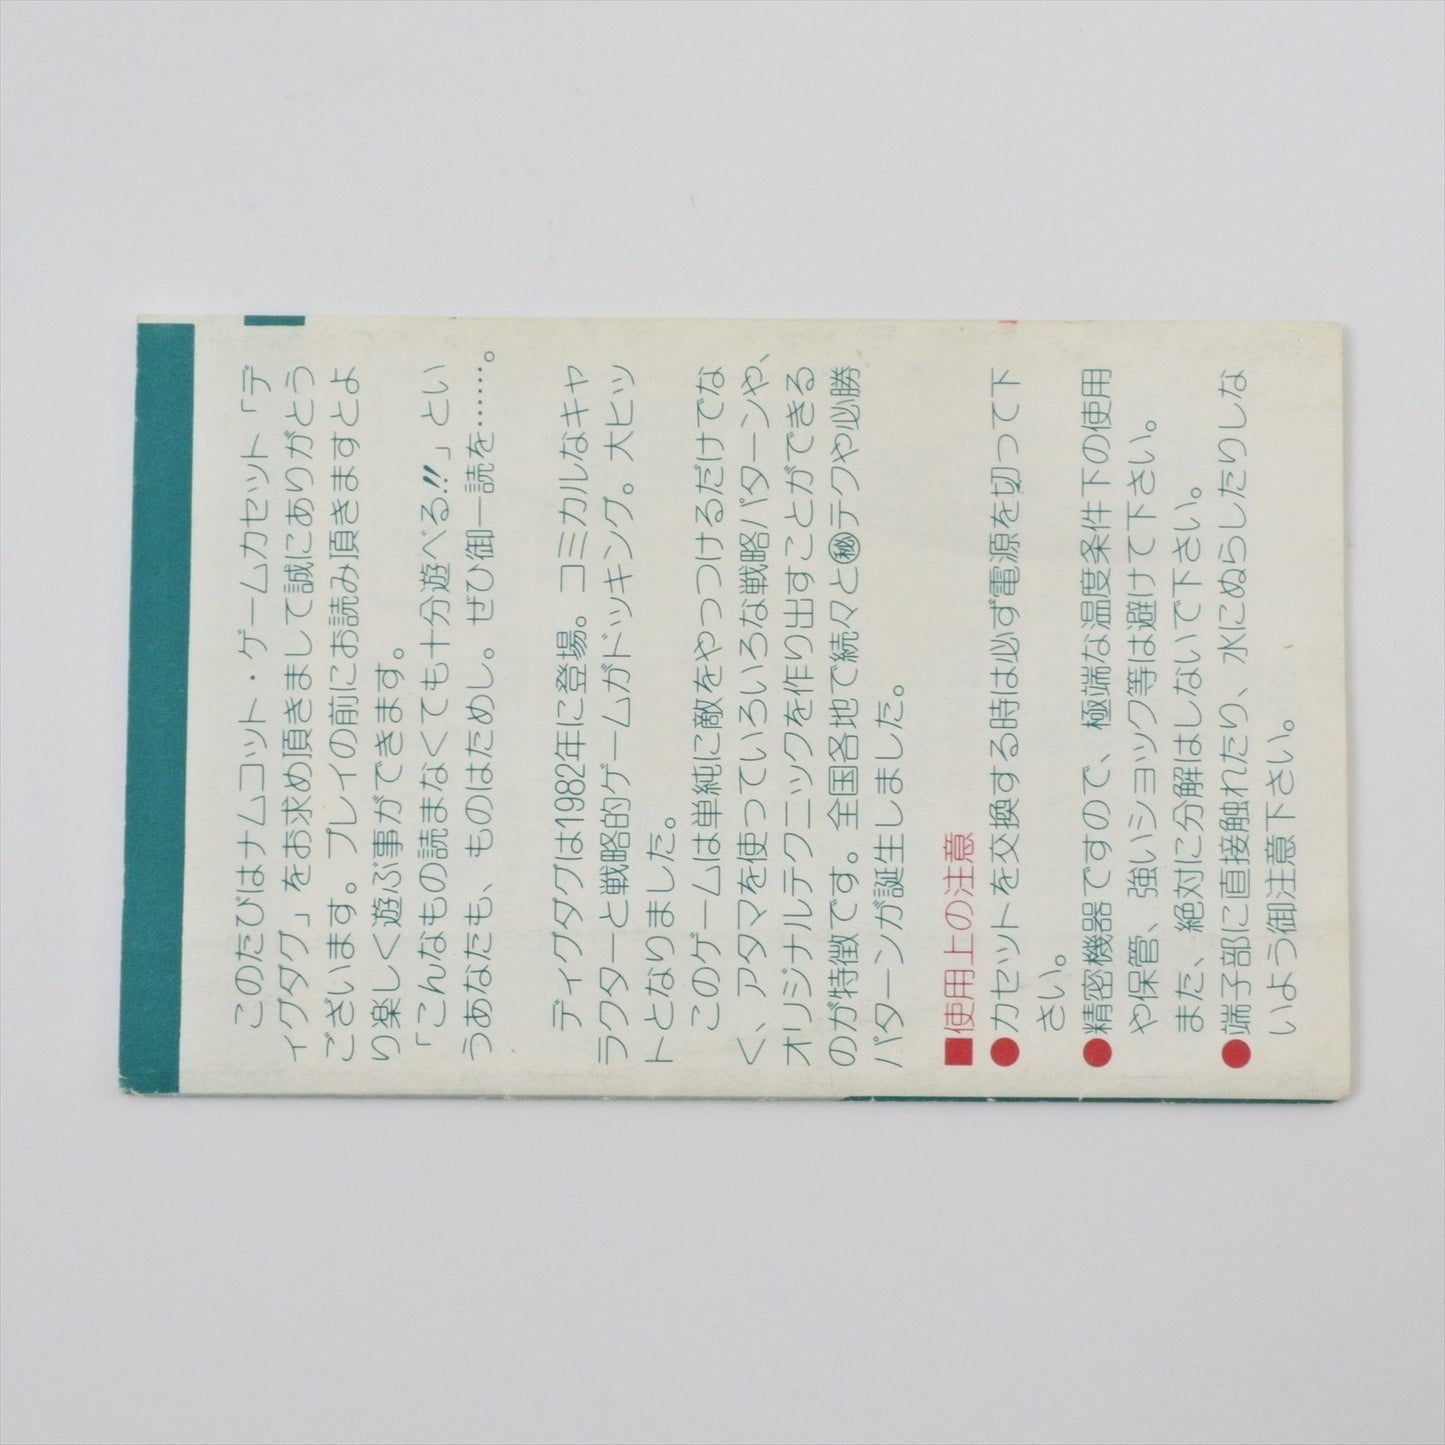 このたびはナムコット・ゲームカセット「デ
ィグダグ」をお求め頂きまして誠にありがとう
ございます。プレイの前にお読み頂きますとよ
り楽しく遊ぶ事ができます。
「こんなもの読まなくても十分遊べる!!」とい
うあなたも、ものはためし。ぜひ御一読を……。
ディグダグは1982年に登場。コミカルなキャ
ラクターと戦略的ゲームがドッキング。大ヒッ
トとなりました。
このゲームは単純に敵をやっつけるだけでな
く、アタマを使っていろいろな戦略パターンや、
オリジナルテクニックを作り出すことができる
のが特徴です。全国各地で続々と㊙テクや必勝
パターンが誕生しました。
■使用上の注意
●カセットを交換する時は必ず電源を切って下
さい。
●精密機器ですので、極端な温度条件下の使用
や保管、強いショック等は避けて下さい。
また、絶対に分解はしないで下さい。
●端子部に直接触れたり、水にぬらしたりしな
いよう御注意下さい。